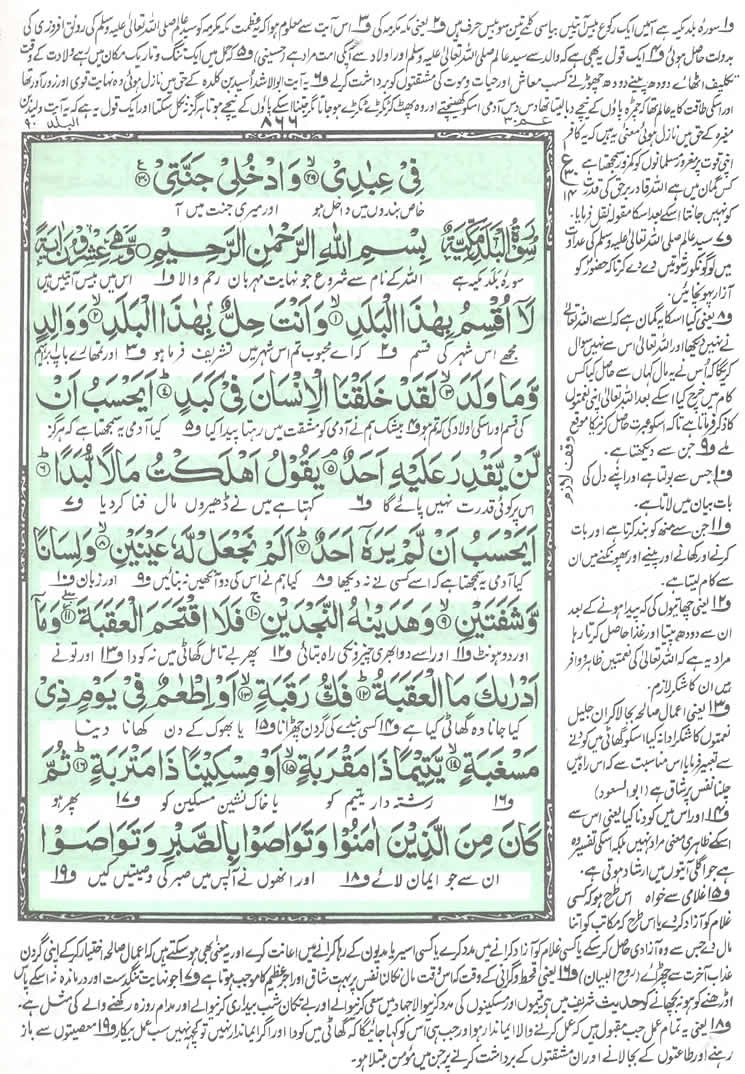 و۱ سورۂ بلد مکیہ ہے اسمیں ایک رکوع بیس آیتیں بیاسی کلمے تین سو بیس حرف ہیں و۲ یعنی مکہ مکرمہ کی و۳ اس آیت سے معلوم ہوا کہ یہ عظمت مکہ مکرمہ کو سید عالم صلی اللہ تعالیٰ علیہ وسلم کی رونق افروزی کی
بدولت حاصل ہوئی و۴ ایک قول یہ بھی ہے کہ والد سے سید عالم صلی اللہ تعالیٰ علیہ وسلم اور اولاد سے آپکی امت مراد ہے (حسینی) و۵ کہ حمل میں ایک تنگ و تاریک مکان میں رہے ولادت کے وقت
تکلیف اٹھائے دودھ پینے دودھ چھوڑنے کسب معاش اور حیات و موت کی مشقتوں کو برداشت کرے و۶ یہ آیت ابوالاشد اُسید بن کلدہ کے حق میں نازل ہوئی وہ نہایت قوی اور زور آور تھا
اور اسکی طاقت کا یہ عالم تھا کہ چمڑہ پاؤں کے نیچے دبا لیتا تھا دس دس آدمی اسکو کھینچتے اور وہ پھٹ کر ٹکڑے ٹکڑے ہو جاتا مگر جتنا اسکے پاؤں کے نیچے ہوتا ہرگز نہ نکل سکتا اور ایک قول یہ ہے کہ یہ آیت ولید بن
عـم ۳۰
۸۶۶
البلد ۹۰
مغیرہ کے حق میں نازل ہوئی معنی یہ ہیں کہ یہ کافر
اپنی قوت پر مغرور مسلمانوں کو کمزور سمجھتا ہے
کس گمان میں ہے اللہ قادر برحق کی قدرت
کو نہیں جانتا اسکے بعد اسکا مقولہ نقل فرمایا۔
و۷ سید عالم صلی اللہ تعالیٰ علیہ وسلم کی عداوت
میں لوگوں کو رشوتیں دے دے کر تاکہ حضور کو
آزار پہونچائیں۔
و۸ یعنی کیا اسکا یہ گمان ہے کہ اسے اللہ تعالیٰ
نے نہیں دیکھا اور اللہ تعالیٰ اس سے نہیں سوال
کریگا کہ اُس نے یہ مال کہاں سے حاصل کیا کس
کام میں خرچ کیا اسکے بعد اللہ تعالیٰ اپنی نعمتوں
کا ذکر فرماتا ہے تاکہ اسکو عبرت حاصل کرنیکا موقع
ملے و۹ جن سے دیکھتا ہے۔
و۱۰ جس سے بولتا ہے اور اپنے دل کی
بات بیان میں لاتا ہے۔
و۱۱ جن سے منھ کو بند کرتا ہے اور بات
کرنے اور کھانے اور پینے اور پھونکنے میں ان
سے کام لیتا ہے۔
و۱۲ یعنی چھاتیوں کی کہ پیدا ہونے کے بعد
ان سے دودھ پیتا اور غذا حاصل کرتا رہا
مراد یہ ہے کہ اللہ تعالیٰ کی نعمتیں ظاہر و وافر
ہیں ان کا شکر لازم۔
و۱۳ یعنی اعمال صالحہ بجا لا کر ان جلیل
نعمتوں کا شکر ادا نہ کیا اسکو گھاٹی میں کودنے
سے تعبیر فرمایا اس مناسبت سے کہ اس راہ میں
چلنا نفس پر شاق ہے (ابوالسعود)
و۱۴ اور اس میں کودنا کیا یعنی اس سے
اسکے ظاہری معنی مراد نہیں بلکہ اسکی تفسیر وہ
ہے جو اگلی آیتوں میں ارشاد ہوتی ہے۔
و۱۵ غلامی سے خواہ اس طرح ہو کہ کسی
غلام کو آزاد کردے یا اس طرح کہ مکاتب کو اتنا
ع ۳۰ ۱۴
وقف لازم
فِیْ عِبٰدِیْ ﴿۲۹﴾ وَ ادْخُلِیْ جَنَّتِیْ ﴿۳۰﴾
خاص بندوں میں داخل ہو اور میری جنت میں آ
سُوْرَۃُ الْبَلَدِ مَکِّیَّۃٌ بِسْمِ اللّٰہِ الرَّحْمٰنِ الرَّحِیْمِ وَّھِیَ عِشْرُوْنَ اٰیَۃً
سورہ بلد مکیہ ہے اللہ کے نام سے شروع جو نہایت مہربان رحم والا و۱ اس میں بیس آیتیں ہیں
لَاۤ اُقْسِمُ بِھٰذَا الْبَلَدِ ﴿۱﴾ وَ اَنْتَ حِلٌّۢ بِھٰذَا الْبَلَدِ ﴿۲﴾ وَ وَالِدٍ
مجھے اس شہر کی قسم و۲ کہ اے محبوب تم اس شہر میں تشریف فرما ہو و۳ اور تمھارے باپ ابراہیم
وَّ مَا وَلَدَ ﴿۳﴾ لَقَدْ خَلَقْنَا الْاِنْسَانَ فِیْ کَبَدٍ ﴿۴﴾ اَیَحْسَبُ اَنْ
کی قسم اور اسکی اولاد کی کہ تم ہو و۴ بیشک ہم نے آدمی کو مشقت میں رہتا پیدا کیا و۵ کیا آدمی یہ سمجھتا ہے کہ ہرگز
لَّنْ یَّقْدِرَ عَلَیْہِ اَحَدٌ ﴿۵﴾ یَقُوْلُ اَھْلَکْتُ مَالًا لُّبَدًا ﴿۶﴾
اس پر کوئی قدرت نہیں پائے گا و۶ کہتا ہے میں نے ڈھیروں مال فنا کر دیا و۷
اَیَحْسَبُ اَنْ لَّمْ یَرَہٗۤ اَحَدٌ ﴿۷﴾ اَلَمْ نَجْعَلْ لَّہٗ عَیْنَیْنِ ﴿۸﴾ وَ لِسَانًا
کیا آدمی یہ سمجھتا ہے کہ اسے کسی نے نہ دیکھا و۸ کیا ہم نے اس کی دو آنکھیں نہ بنائیں و۹ اور زبان و۱۰
وَّ شَفَتَیْنِ ﴿۹﴾ وَ ھَدَیْنٰہُ النَّجْدَیْنِ ﴿۱۰﴾ فَلَا اقْتَحَمَ الْعَقَبَۃَ ﴿۱۱﴾ وَ مَاۤ
اور دو ہونٹ و۱۱ اور اسے دو ابھری چیزوں کی راہ بتائی و۱۲ پھر بے تامل گھاٹی میں نہ کودا و۱۳ اور تو نے
اَدْرٰىکَ مَا الْعَقَبَۃُ ﴿۱۲﴾ فَکُّ رَقَبَۃٍ ﴿۱۳﴾ اَوْ اِطْعٰمٌ فِیْ یَوْمٍ ذِیْ
کیا جانا وہ گھاٹی کیا ہے و۱۴ کسی بندے کی گردن چھڑانا و۱۵ یا بھوک کے دن کھانا دینا
مَسْغَبَۃٍ ﴿۱۴﴾ یَّتِیْمًا ذَا مَقْرَبَۃٍ ﴿۱۵﴾ اَوْ مِسْکِیْنًا ذَا مَتْرَبَۃٍ ﴿۱۶﴾ ثُمَّ
و۱۶ رشتہ دار یتیم کو یا خاک نشین مسکین کو و۱۷ پھر ہو
کَانَ مِنَ الَّذِیْنَ اٰمَنُوْا وَ تَوَاصَوْا بِالصَّبْرِ وَ تَوَاصَوْا
ان سے جو ایمان لائے و۱۸ اور انھوں نے آپس میں صبر کی وصیتیں کیں و۱۹
مال دے جس سے وہ آزادی حاصل کر سکے یا کسی غلام کو آزاد کرانے میں مدد کرے یا کسی اسیر یا مدیون کے رہا کرانے میں اعانت کرے اور یہ معنی بھی ہو سکتے ہیں کہ اعمال صالحہ اختیار کر کے اپنی گردن
عذاب آخرت سے چھڑائے (روح البیان) و۱۶ یعنی قحط و گرانی کے وقت کہ اس وقت مال نکالنا نفس پر بہت شاق اور اجر عظیم کا موجب ہوتا ہے و۱۷ جو نہایت تنگدست اور درماندہ نہ اسکے پاس
اوڑھنے کو ہو نہ بچھانے کو حدیث شریف میں ہے یتیموں اور مسکینوں کی مدد کرنیوالا جہاد میں سعی کرنیوالے اور بے تکان شب بیداری کرنیوالے اور مدام روزہ رکھنے والے کی مثل ہے۔
و۱۸ یعنی یہ تمام عمل جب مقبول ہیں کہ عمل کرنے والا ایماندار ہو اور جب ہی اس کو کہا جائیگا کہ گھاٹی میں کودا اور اگر ایماندار نہیں تو کچھ نہیں سب عمل بیکار و۱۹ معصیتوں سے باز
رہنے اور طاعتوں کے بجا لانے اور ان مشقتوں کے برداشت کرنے پر جن میں مومن مبتلا ہو۔